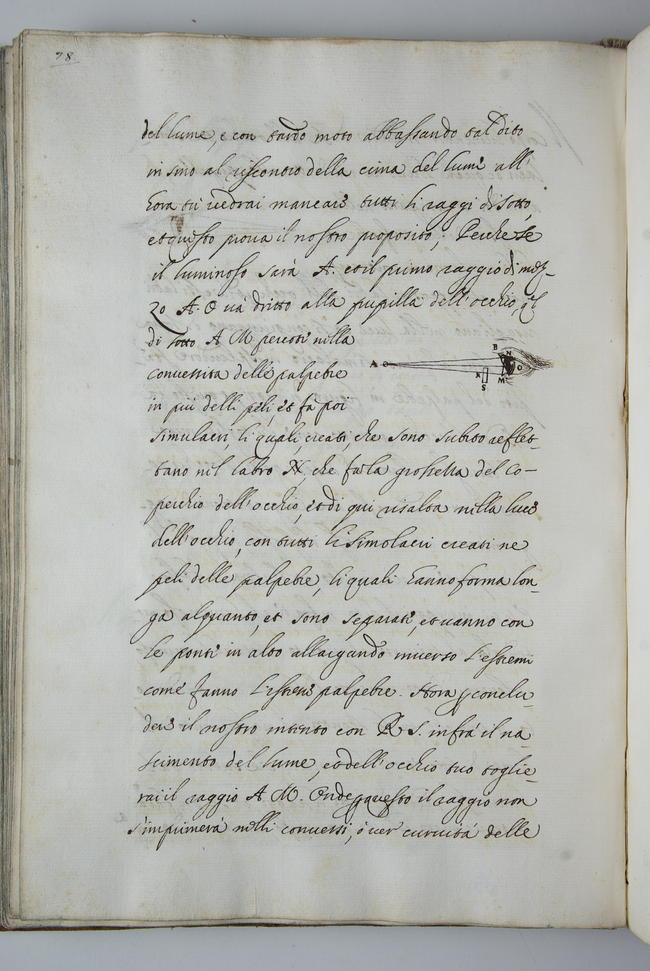 78
del lume, e con tardo moto abbassando tal dito
in sino al riscontro della cima del lume all'
hora tu vedrai mancare tutti li raggi di sotto,
et questo prova il nostro proposito; Perche se
il luminoso sarà A. et il primo raggio di mez-
zo A. O và dritto alla pupilla dell'occhio,
di sotto A M percote nella
convessita delle palpebre
in più delli peli, et fà poi
simulacri, li quali, creati, che sono subito reflet-
tano nel labro N, che fa la grossezza del co-
perchio dell'occhio, et di qui risalta nella luce
dell'occhio, con tutti li simolacri creati ne
peli delle palpebre, li quali hanno forma lon-
ga alquanto, et sono separati, et vanno con
le ponte in alto allargando inverso l'estremi
come fanno l'istesse palpebre. Hora conclu-
dere il nostro intento con R S. infrà il na-
scimento del lume, et dell'occhio tuo toglie-
rai il raggio A M. Onde questo il raggio non
s'imprimerà nelli convessi, ò ver curvità delle
A
B
N
O
M
R
S